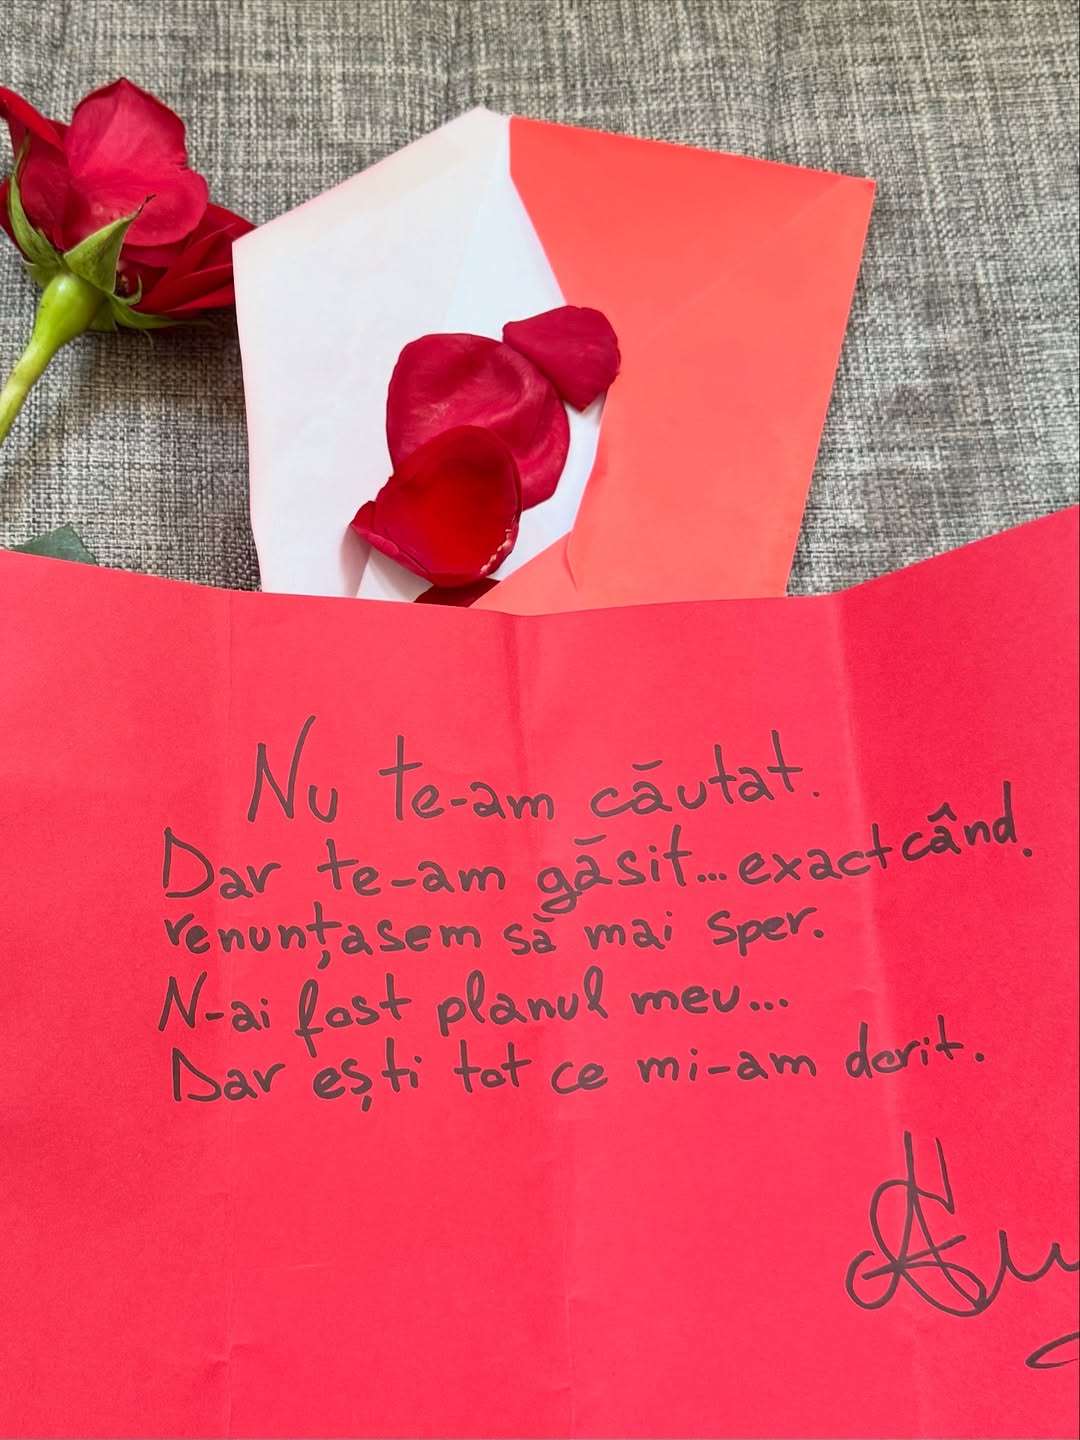 Nu te-am căutat.
Dar te-am găsit... exact când.
renunțasem să mai sper.
N-ai fost planul meu...
Dar ești tot ce mi-am dorit.